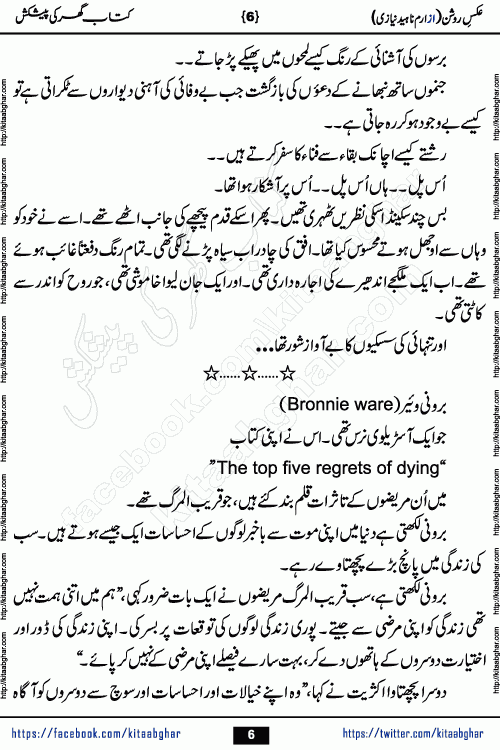 عکسِ روشن (از ارم ناہید نیازی) {6} کتاب گھر کی پیشکش
برسوں کی آشنائی کے رنگ کیسے لمحوں میں پھیکے پڑ جاتے۔۔
جنموں ساتھ نبھانے کے دعوؤں کی بازگشت جب بے وفائی کی آہنی دیواروں سے ٹکراتی ہے تو
کیسے بے وجود ہو کر رہ جاتی ہے۔۔
رشتے کیسے اچانک بقاء سے فناء کا سفر کرتے ہیں۔۔
اُس پل۔۔ہاں اُس پل۔۔اُس پر آشکار ہوا تھا۔
بس چند سیکنڈ اسکی نظریں ٹھہری تھیں۔ پھر اسکے قدم پیچھے کی جانب اٹھے تھے۔ اسے نے خود کو
وہاں سے اوجھل ہوتے محسوس کیا تھا۔ افق کی چادر اب سیاہ پڑنے لگی تھی۔ تمام رنگ دفعتاً غائب ہوئے
تھے۔ اب ایک ملگجے اندھیرے کی اجارہ داری تھی۔ اور ایک جان لیوا خاموشی تھی، جو روح کو اندر سے
کاٹتی تھی۔
اور تنہائی کی سسکیوں کا بے آواز شور تھا...
☆......☆......☆
برونی وئیر (Bronnie ware)
جو ایک آسڑیلوی نرس تھی۔ اس نے اپنی کتاب
“The top five regrets of dying”
میں اُن مریضوں کے تاثرات قلم بند کئے ہیں، جو قریب المرگ تھے۔
برونی لکھتی ہے دنیا میں اپنی موت سے باخبر لوگوں کے احساسات ایک جیسے ہوتے ہیں۔ سب
کی زندگی میں پانچ بڑے پچھتاوے رہے۔
برونی لکھتی ہے، سب قریب المرگ مریضوں نے ایک بات ضرور کہی، ”ہم میں اتنی ہمت نہیں
تھی زندگی کو اپنی مرضی سے جیتے۔ پوری زندگی لوگوں کی توقعات پر بسر کی۔ اپنی زندگی کی ڈور اور
اختیارات دوسروں کے ہاتھوں دے کر، بہت سارے فیصلے اپنی مرضی کے نہیں کر پائے۔“
دوسرا پچھتاوا اکثریت نے کہا، ”وہ اپنے خیالات اور احساسات اور سوچ سے دوسروں کو آگاہ
https://facebook.com/kitaabghar 6 https://twitter.com/kitaabghar
http://kitaabghar.com http://kitaabghar.com http://kitaabghar.com http://kitaabghar.com http://kitaabghar.com http://kitaabghar.com http://kitaabghar.com http://kitaabghar.com
http://kitaabghar.com http://kitaabghar.com http://kitaabghar.com http://kitaabghar.com http://kitaabghar.com http://kitaabghar.com http://kitaabghar.com http://kitaabghar.com
کتاب گھر کی پیشکش
kitaabghar.com
facebook.com/kitaabghar